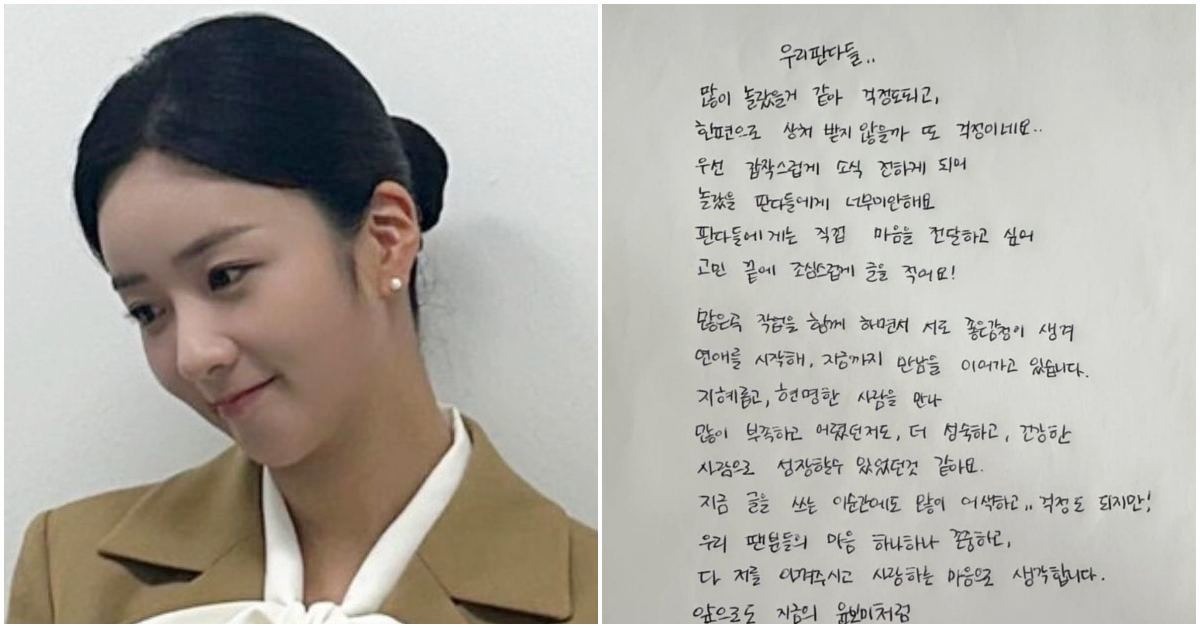 우리판다들..
많이 놀랐을거 같아 걱정도되고,
한편으로 상처 받지 않을까 또 걱정이네요..
우선 갑작스럽게 소식 전하게 되어
놀랐을 판다들에게 너무미안해요
판다들에게는 직접 마음을 전달하고 싶어
고민 끝에 조심스럽게 글을 적어요!
많은곡 작업을 함께 하면서 서로 좋은감정이 생겨
연애를 시작해, 지금까지 만남을 이어가고 있습니다.
지혜롭고, 현명한 사람을 만나
많이 부족하고 어렸던저도, 더 성숙하고, 건강한
사람으로 성장할수 있었던것 같아요.
지금 글을 쓰는 이순간에도 많이 어색하고.. 걱정도 되지만!
우리 팬분들의 마음 하나하나 존중하고,
다 저를 아껴주시고 사랑하는 마음으로 생각합니다.
앞으로도 지금의 윤보미처럼